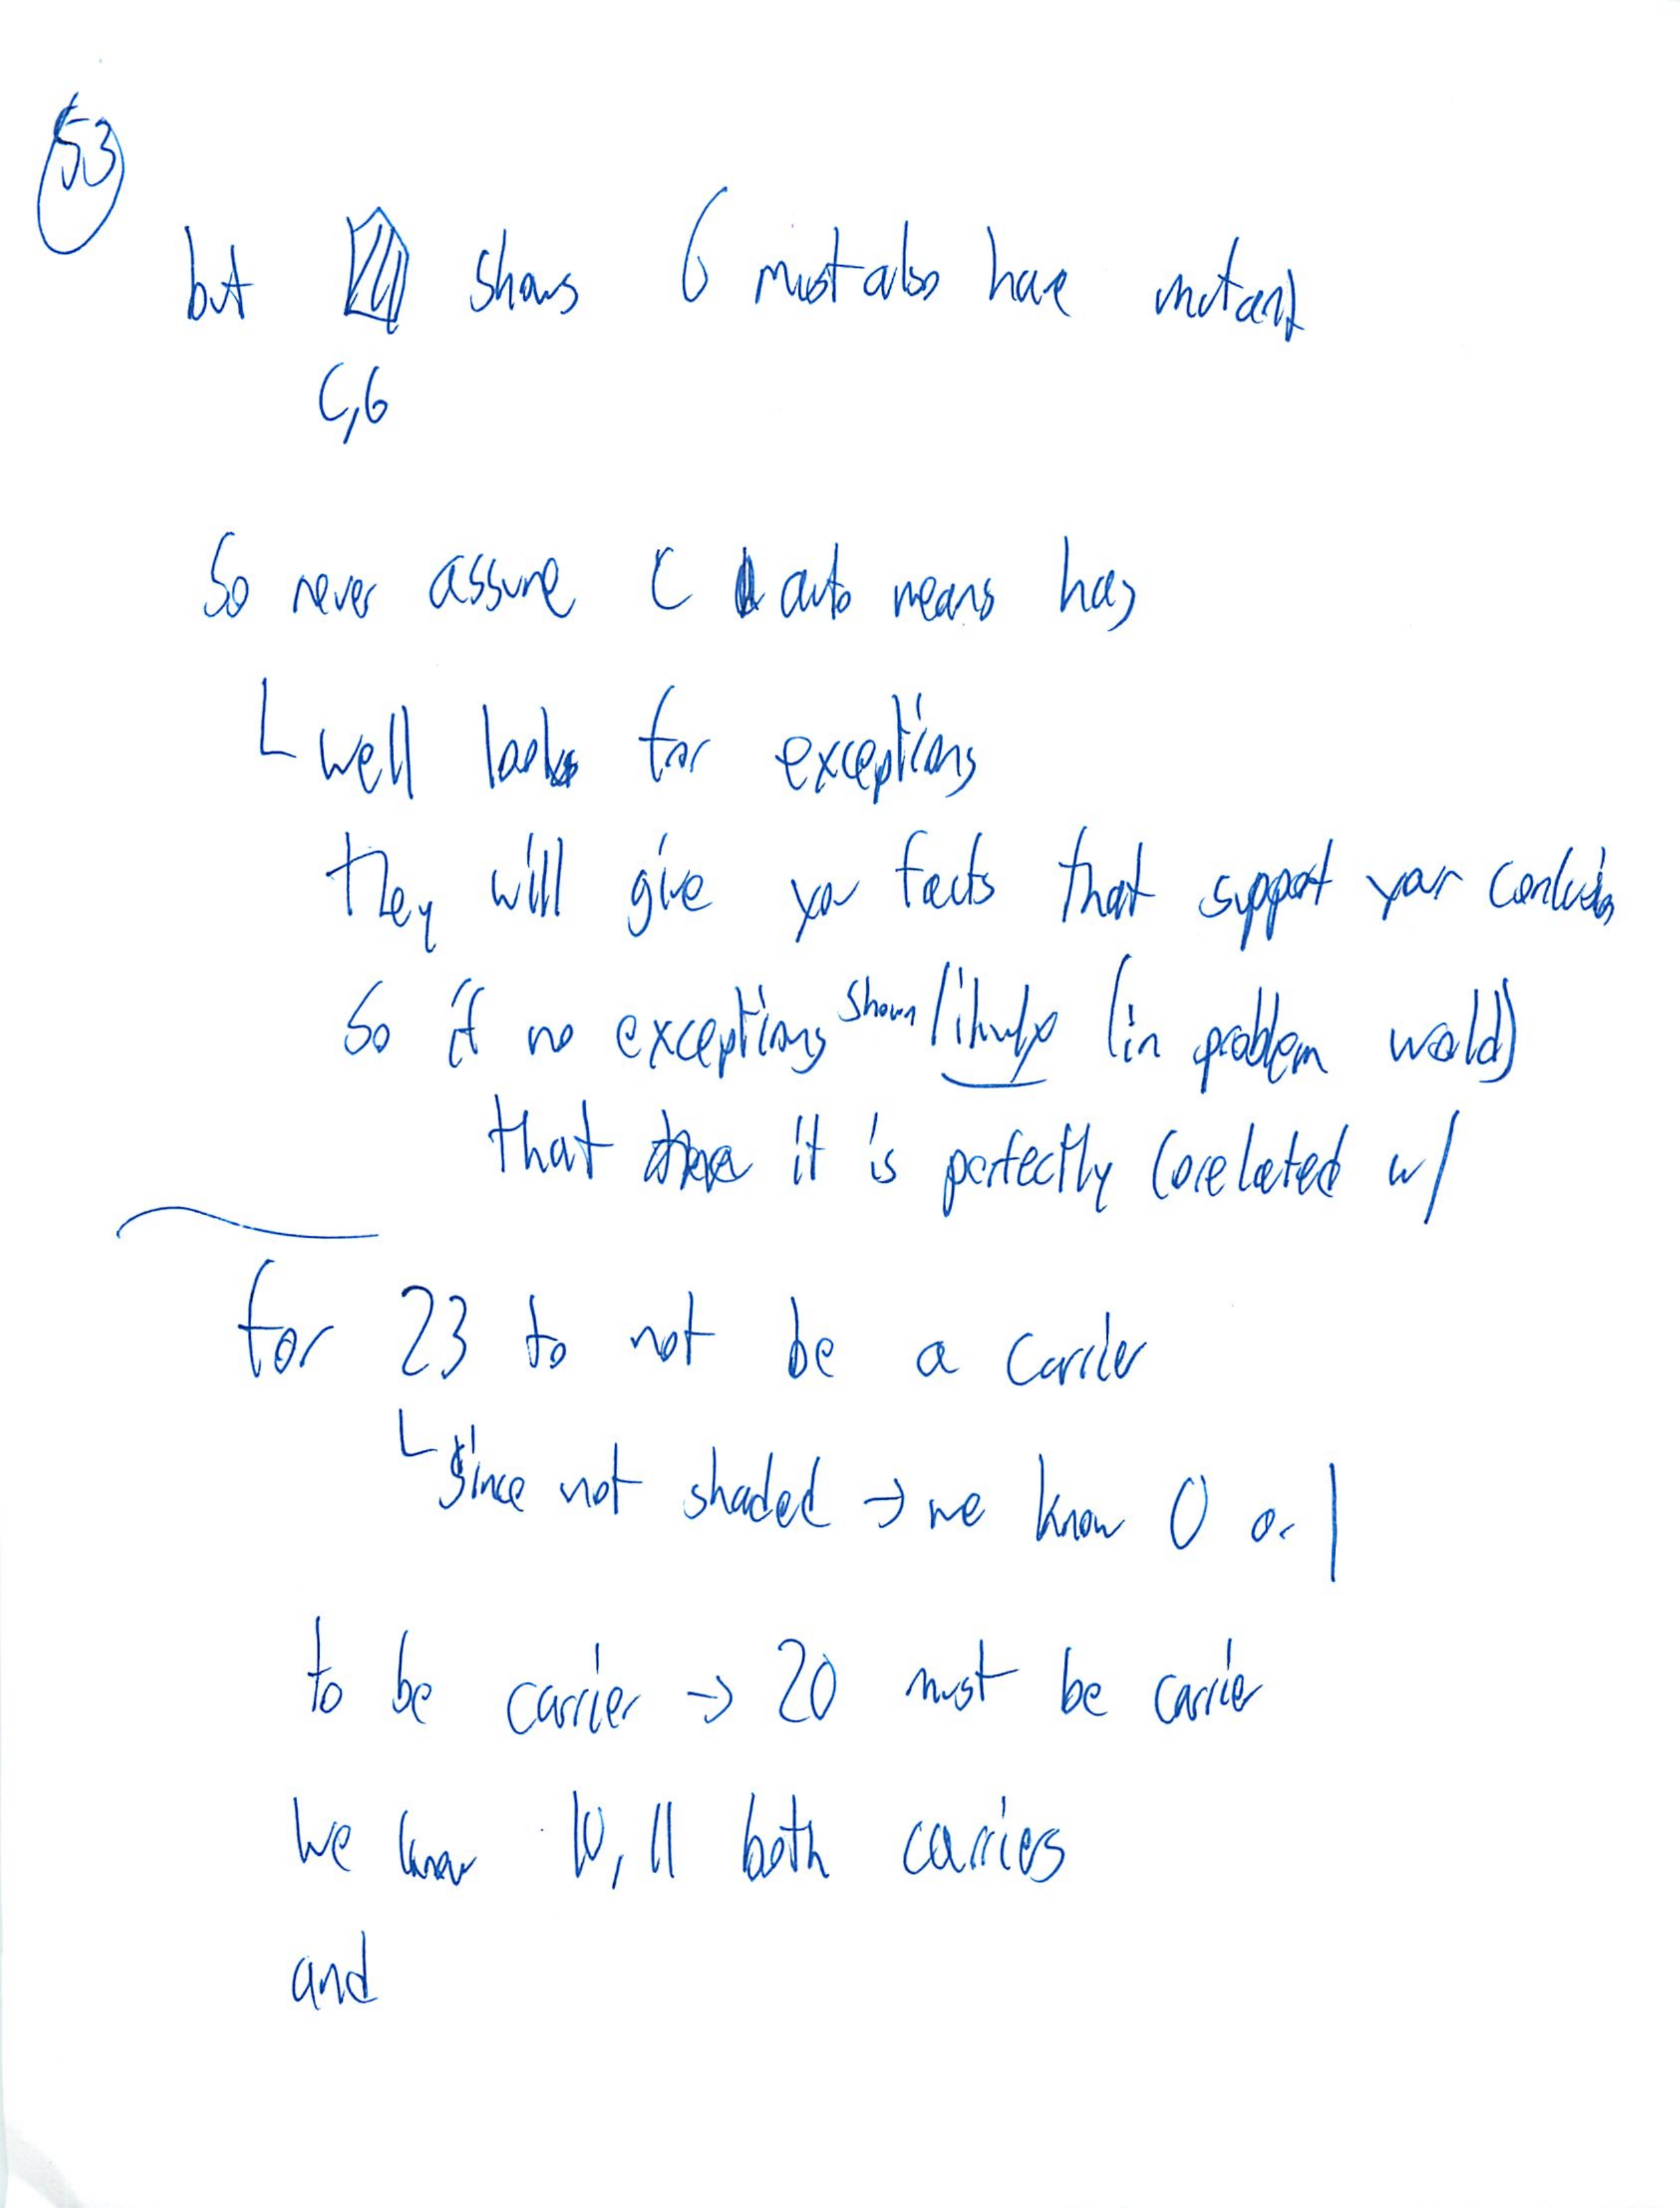 53
but shows G must also have mutant
C,G
So never assume C auto means has
well looks for exceptions
they will give you facts that support your conclusion
So if no exceptions shown likely (in problem world)
that it is perfectly corelated w/
for 23 to not be a carrier
Since not shaded → we know 0 or 1
to be carrier → 20 must be carrier
we know 10, 11 both carriers
and